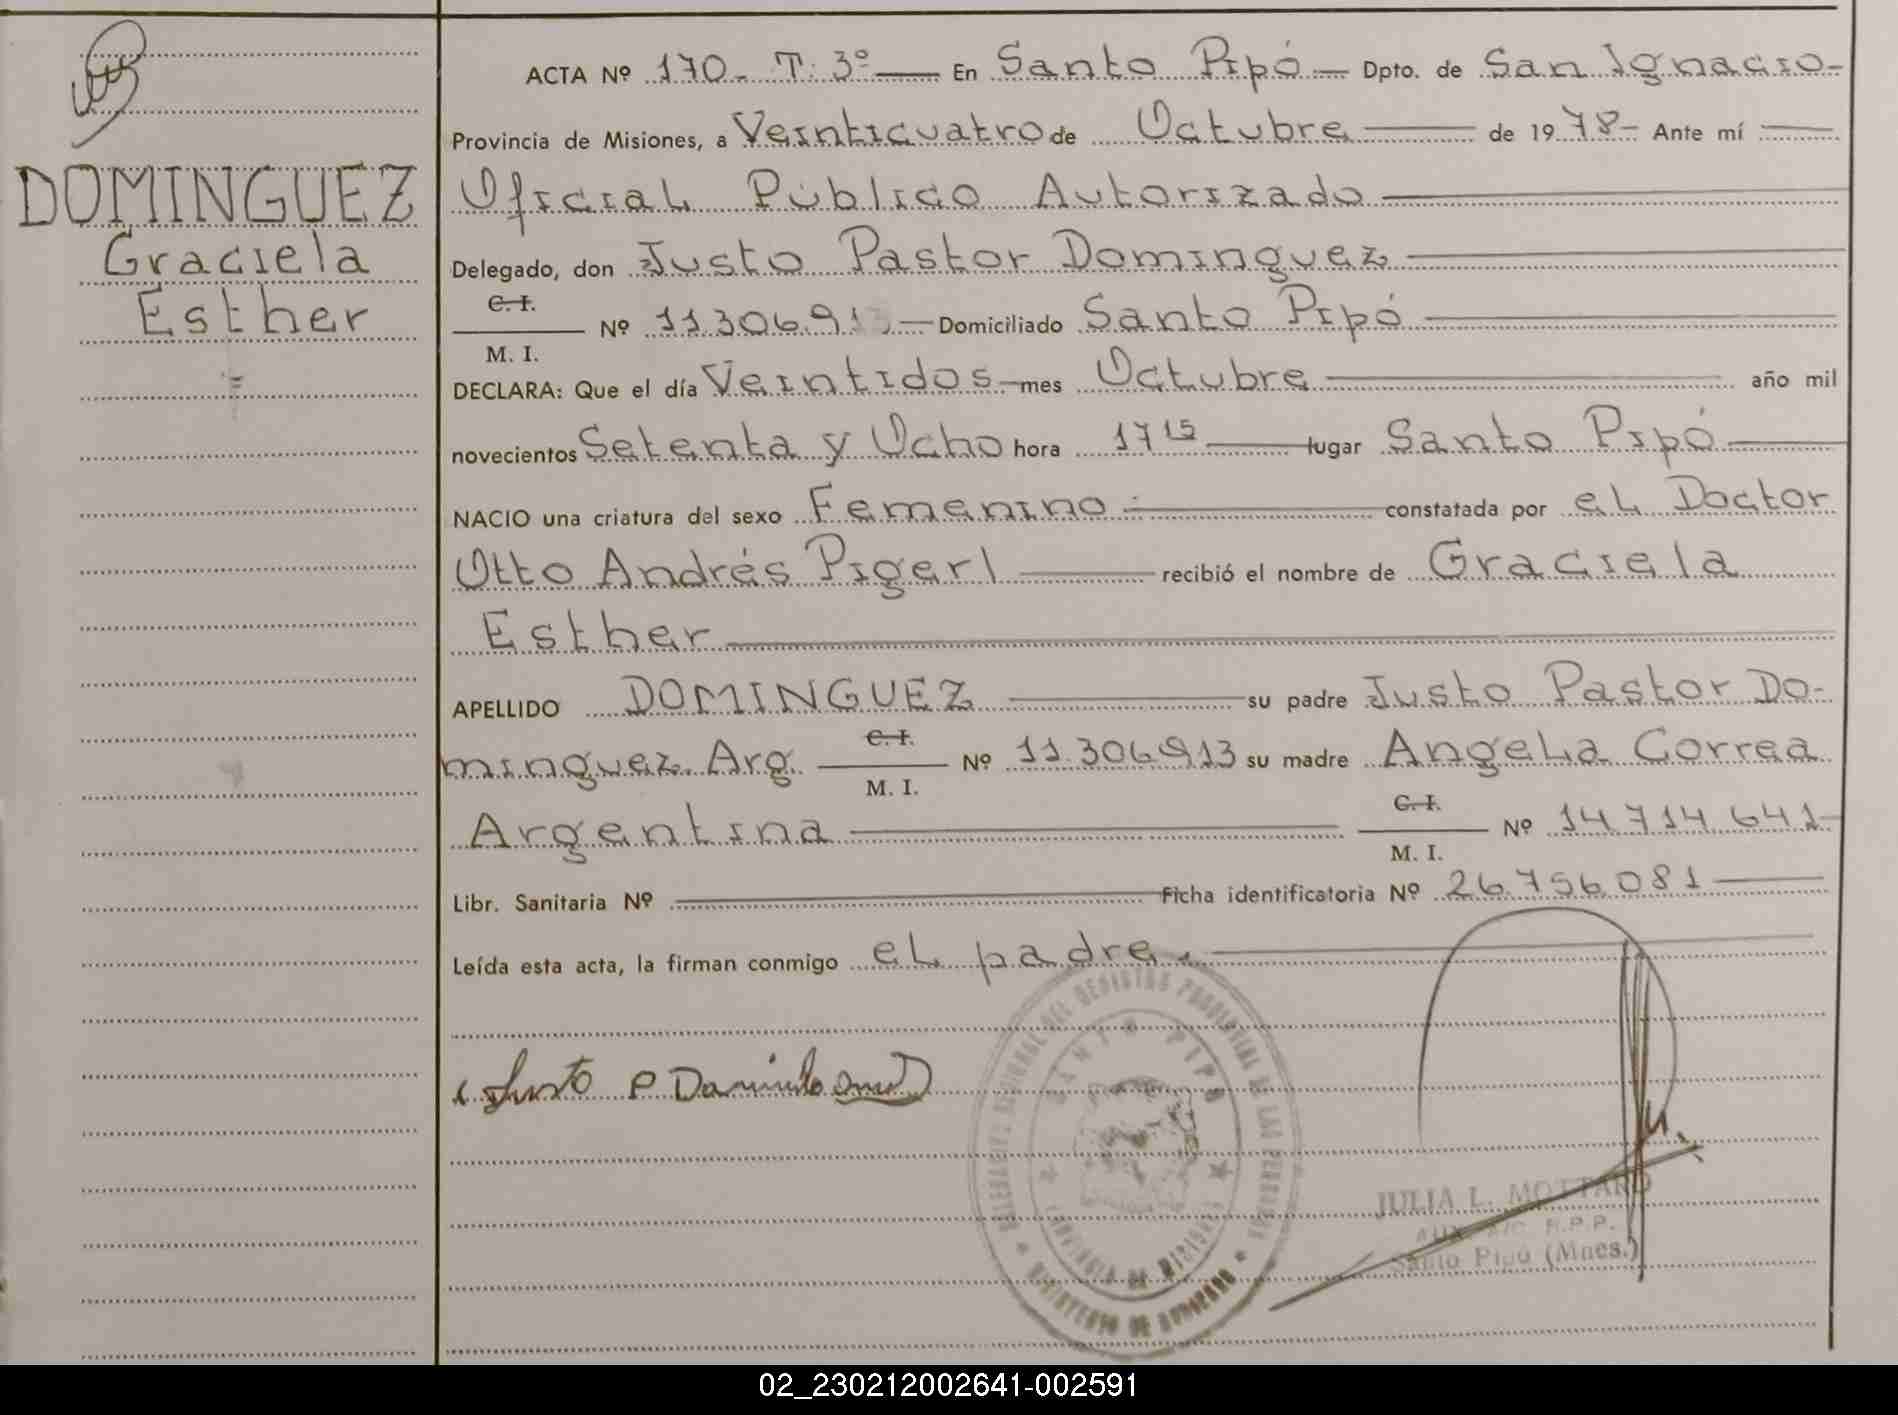 DOMINGUEZ
Graciela
Esther
ACTA Nº 170 - T. 3º — En Santo Pipó — Dpto. de San Ignacio -
Provincia de Misiones, a Veinticuatro de Octubre — de 19 78 - Ante mí —
Oficial Público Autorizado
Delegado, don Justo Pastor Dominguez
C. I.
M. I. Nº 11.306.913 — Domiciliado Santo Pipó
DECLARA: Que el día Veintidos — mes Octubre — año mil
novecientos Setenta y Ocho hora 17 15 — lugar Santo Pipó
NACIO una criatura del sexo Femenino - — constatada por eL Doctor
Otto Andrés Pigerl — recibió el nombre de Graciela
Esther
APELLIDO DOMINGUEZ — su padre Justo Pastor Do-
minguez. Arg. C. I. M. I. Nº 11.306.913 su madre AngeLa Correa
Argentina — C. I. M. I. Nº 14.714.641-
Libr. Sanitaria Nº — Ficha identificatoria Nº 26.756.081
Leída esta acta, la firman conmigo eL padre.
Justo P Dominguez
SANTO PIPO
PROVINCIA DE MISIONES
MINISTERIO DE GOBIERNO
JULIA L. MOTTARO
R.P.P.
Santo Pipó (Mnes.)
02_230212002641-002591